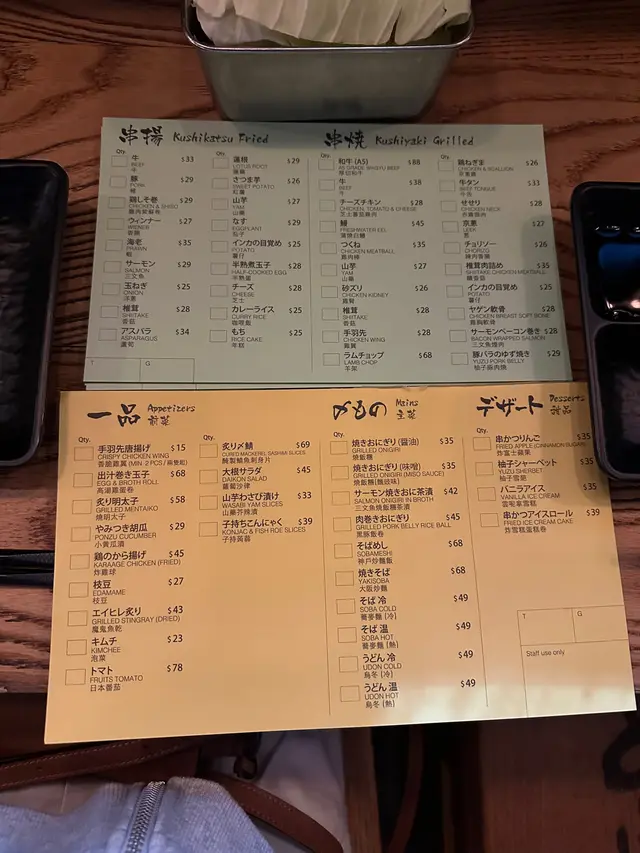 串揚 Kushikatsu Fried
Qty.
牛 $33
BEEF
牛
豚 $29
PORK
豬
鶏しそ巻 $29
CHICKEN & SHISO
雞肉紫蘇魚
ウィンナー $27
WIENER
香腸
海老 $35
PRAWN
蝦
サーモン $29
SALMON
三文魚
玉ねぎ $25
ONION
洋蔥
椎茸 $28
SHIITAKE
香菇
アスパラ $34
ASPARAGUS
蘆筍
Qty.
蓮根 $29
LOTUS ROOT
蓮藕
さつま芋 $26
SWEET POTATO
紅薯
山芋 $27
YAM
山藥
なす $29
EGGPLANT
茄子
インカの目覚め $25
POTATO
薯仔
半熟煮玉子 $28
HALF-COOKED EGG
半熟蛋
チーズ $28
CHEESE
芝士
カレーライス $25
CURRY RICE
咖喱飯
もち $25
RICE CAKE
年糕
T G
串焼 Kushiyaki Grilled
Qty.
和牛 (A5) $88
A5 GRADE WAGYU BEEF
厚切和牛
牛 $38
BEEF
牛
チーズチキン $28
CHICKEN, TOMATO & CHEESE
芝士蕃茄雞肉
鰻 $45
FRESHWATER EEL
蒲燒白鱔
つくね $35
CHICKEN MEATBALL
雞肉棒
山芋 $27
YAM
山藥
砂ズリ $26
CHICKEN KIDNEY
雞腎
椎茸 $28
SHIITAKE
香菇
手羽先 $28
CHICKEN WING
雞翼
ラムチョップ $68
LAMB CHOP
羊架
Qty.
鶏ねぎま $26
CHICKEN & SCALLION
京蔥雞
牛タン $33
BEEF TONGUE
牛舌
せせり $28
CHICKEN NECK
京葱 $27
LEEK
蔥
チョリソー $26
CHORIZO
辣肉香腸
椎茸肉詰め $35
SHIITAKE CHICKEN MEATBALL
インカの目覚め $25
POTATO
薯仔
ヤゲン軟骨 $28
CHICKEN BREAST SOFT BONE
雞胸軟骨
サーモンベーコン巻き $28
BACON WRAPPED SALMON
三文魚煙肉
豚バラのゆず焼き $29
YUZU PORK BELLY
柚子豚肉腩
一品 Appetizers
前菜
Qty.
手羽先唐揚げ $15
CRISPY CHICKEN WING
香脆雞翼 (MIN. 2 PCS / 兩隻起)
出汁巻き玉子 $68
EGG & BROTH ROLL
高湯雞蛋卷
炙り明太子 $58
GRILLED MENTAIKO
燒明太子
やみつき胡瓜 $29
PONZU CUCUMBER
小黃瓜漬
鶏のから揚げ $45
KARAAGE CHICKEN (FRIED)
炸雞球
枝豆 $27
EDAMAME
枝豆
エイヒレ炙り $43
GRILLED STINGRAY (DRIED)
魔鬼魚乾
キムチ $23
KIMCHEE
泡菜
トマト $78
FRUITS TOMATO
日本番茄
Qty.
炙り〆鯖 $69
CURED MACKEREL SASHIMI SLICES
醃製鯖魚刺身片
大根サラダ $45
DAIKON SALAD
蘿蔔沙律
山芋わさび漬け $33
WASABI YAM SLICES
山藥芥辣漬
子持ちこんにゃく $39
KONJAC & FISH ROE SLICES
子持蒟蒻
〆もの Mains
主菜
Qty.
焼きおにぎり (醤油) $35
GRILLED ONIGIRI
燒飯糰
焼きおにぎり (味噌) $35
GRILLED ONIGIRI (MISO SAUCE)
燒飯糰(麵豉味)
サーモン焼きおに茶漬 $42
SALMON ONIGIRI IN BROTH
三文魚燒飯糰茶漬
肉巻きおにぎり $45
GRILLED PORK BELLY RICE BALL
黑豚飯卷
そばめし $68
SOBAMESHI
神戶炒麵飯
焼きそば $68
YAKISOBA
大阪炒麵
そば 冷 $49
SOBA COLD
蕎麥麵 (冷)
そば 温 $49
SOBA HOT
蕎麥麵 (熱)
うどん 冷 $49
UDON COLD
烏冬 (冷)
うどん 温 $49
UDON HOT
烏冬 (熱)
デザート Desserts
甜品
Qty.
串かつりんご $35
FRIED APPLE (CINNAMON SUGAR)
炸富士蘋果
柚子シャーベット $35
YUZU SHERBET
柚子雪葩
バニラアイス $35
VANILLA ICE CREAM
雲呢拿雪糕
串かつアイスロール $39
FRIED ICE CREAM CAKE
炸雪糕蛋糕卷
T G
Staff use only